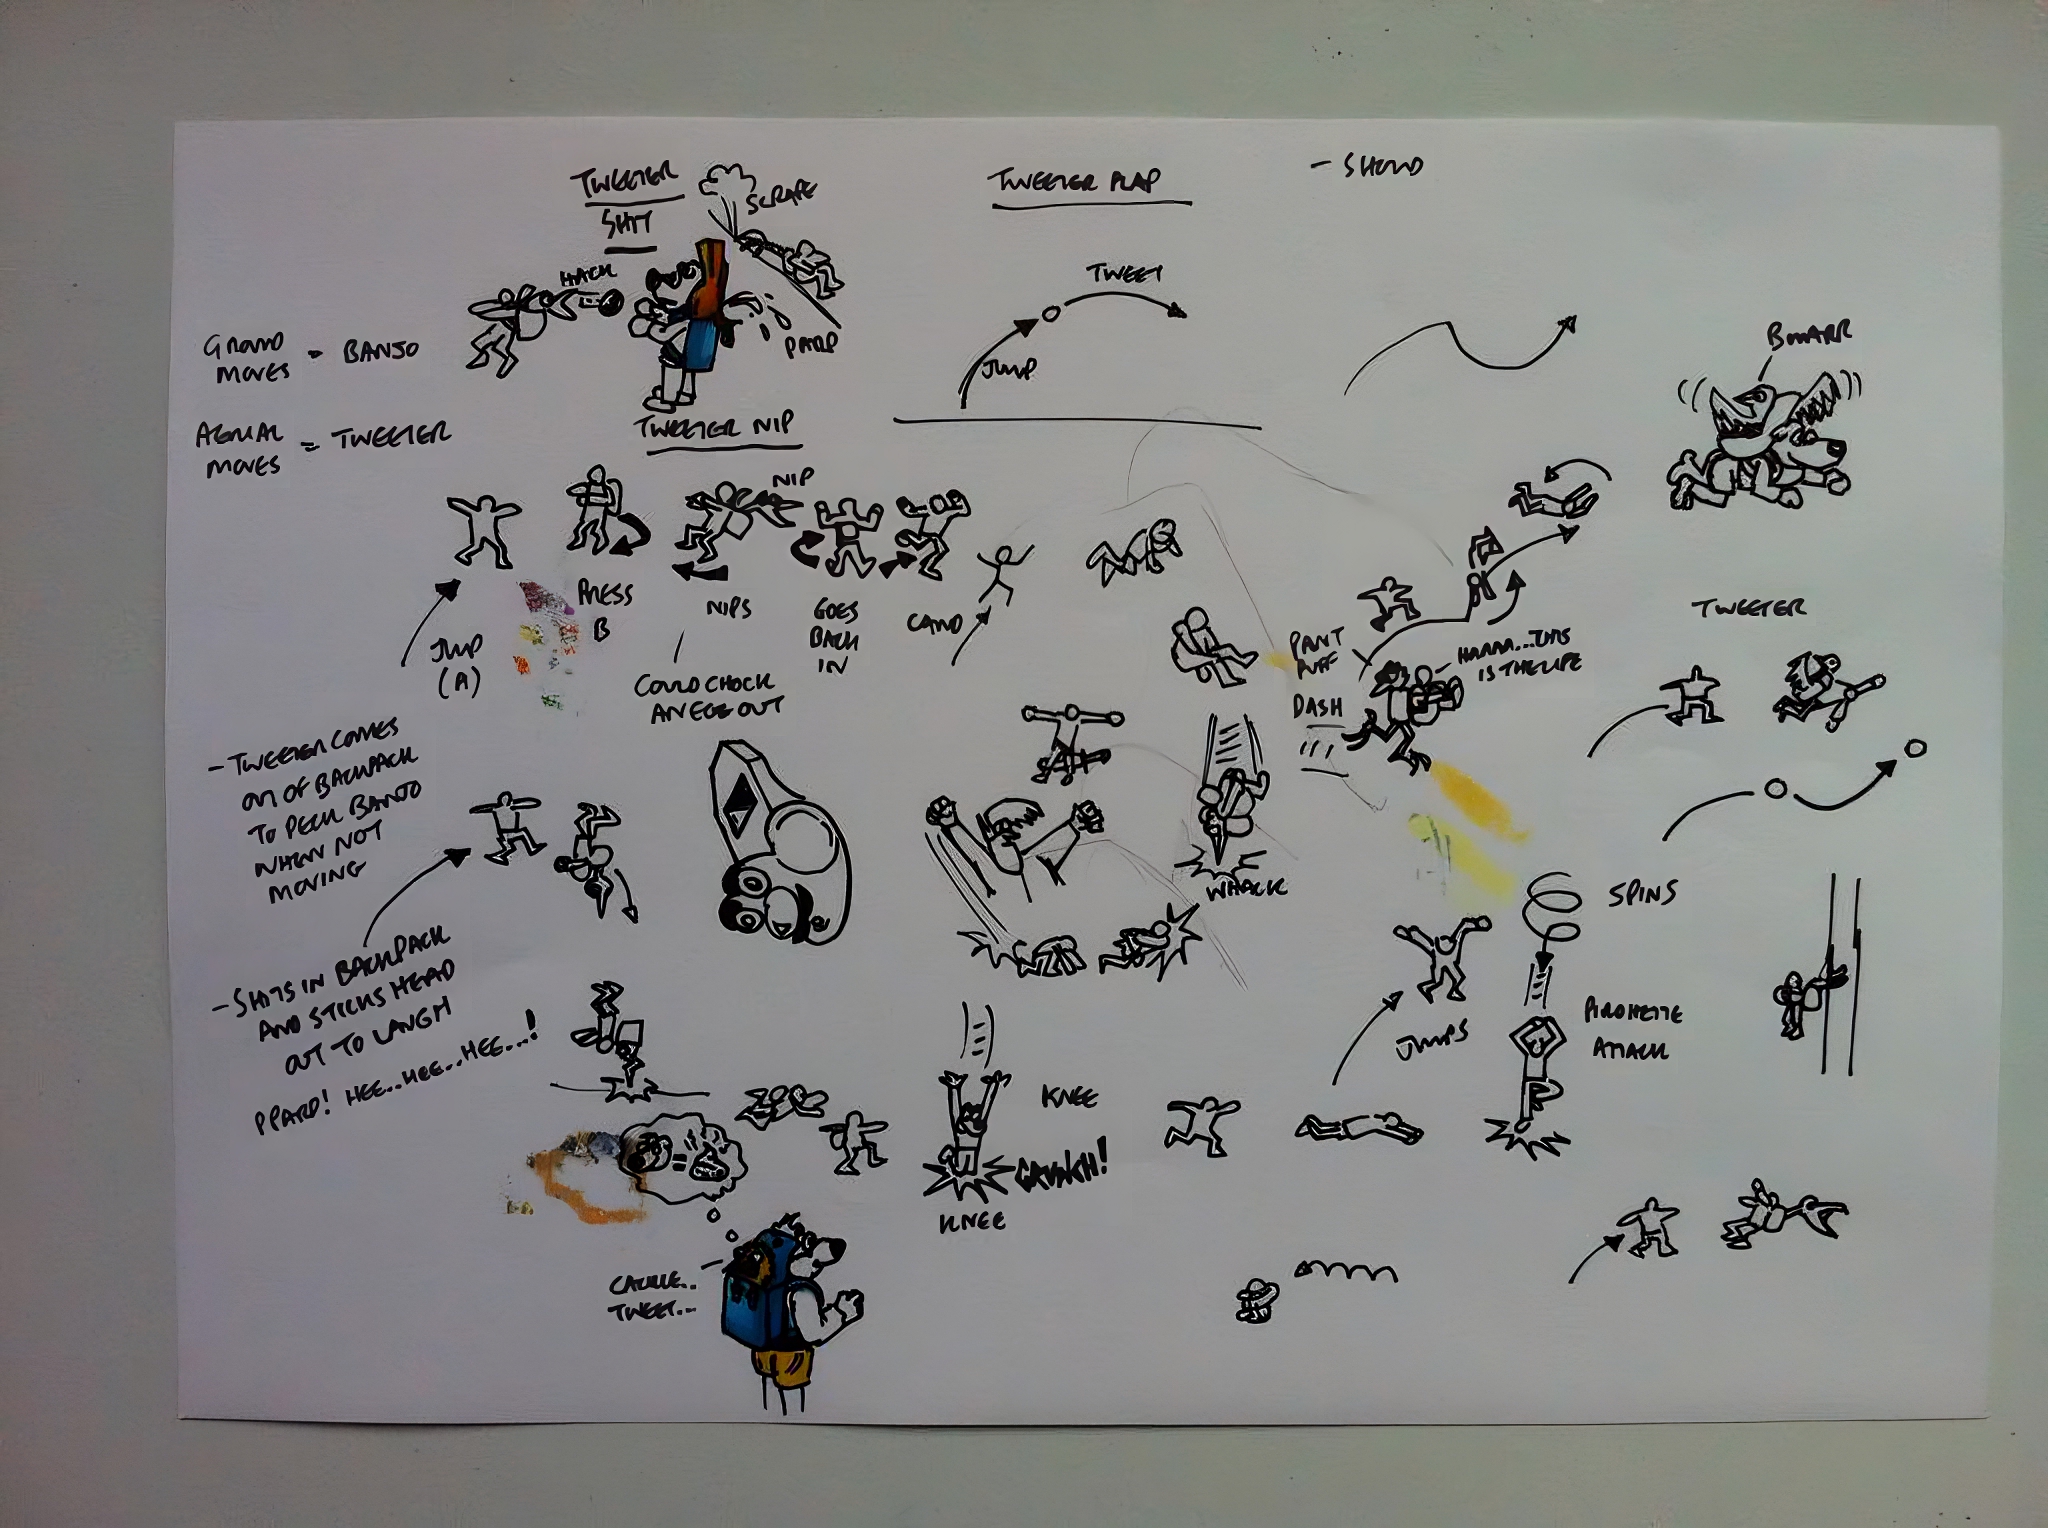 TWEETER
SHIT
SCRAPE
TWEETER FLAP
HACK
TWEET
JUMP
PARP
GROUND
MOVES = BANJO
AERIAL
MOVES = TWEETER
TWEETER NIP
NIP
JUMP
(A)
PRESS
B
NIPS
GOES
BACK
IN
LAND
COULD CHUCK
AN EGG OUT
PANT
PUFF
DASH
HAAAA...THIS
IS THE LIFE
TWEETER
- TWEETER COMES
OUT OF BACKPACK
TO PECK BANJO
WHEN NOT
MOVING
- SHITS IN BACKPACK
AND STICKS HEAD
OUT TO LAUGH
PPARP! HEE...HEE...HEE...!
WHACK
SPINS
JUMPS
PIROHETTE
ATTACK
KNEE
CRUNCH!
KNEE
CACKLE..
TWEET...